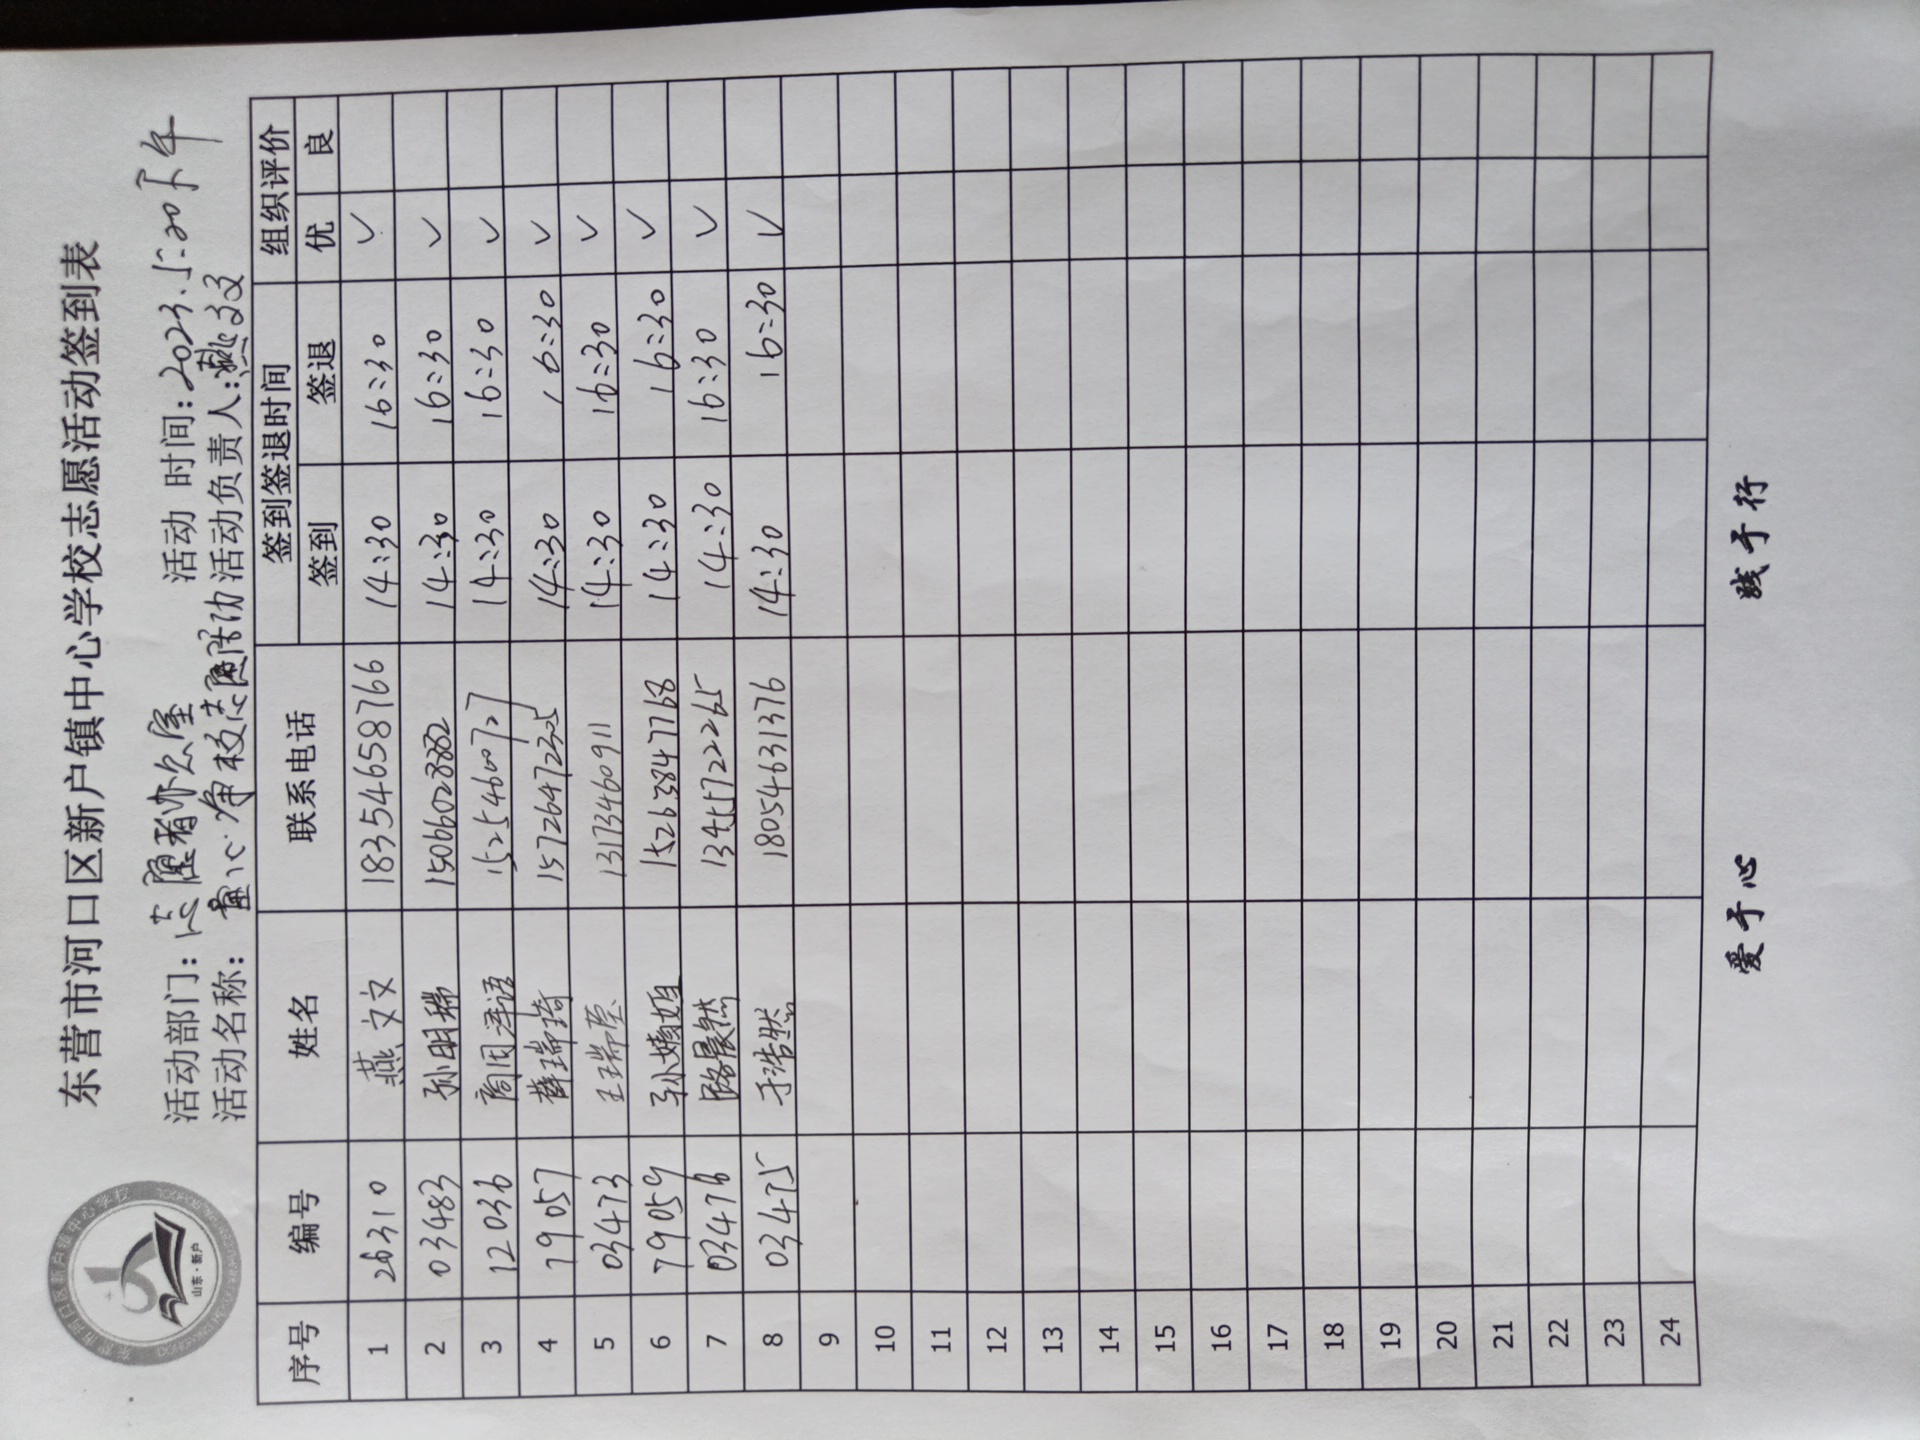 东营市河口区新户镇中心学校志愿活动签到表
山东·新户
活动部门：志愿者办公室 活动 时间：2023.5.20下午
活动名称：童心·净校志愿活动 活动负责人：燕文文
序号 编号 姓名 联系电话 签到签退时间 组织评价
签到 签退 优 良
1 26310 燕文文 18354658766 14:30 16:30 ✓
2 03483 孙明瑞 15066028882 14:30 16:30 ✓
3 12036 周雨泽语 15254600727 14:30 16:30 ✓
4 79057 薛瑞琦 15726472305 14:30 16:30 ✓
5 03473 王瑞 13173460911 14:30 16:30 ✓
6 79059 孙婧 15263847768 14:30 16:30 ✓
7 03476 路晨然 13455722265 14:30 16:30 ✓
8 03475 于浩然 18054631376 14:30 16:30 ✓
9
10
11
12
13
14
15
16
17
18
19
20
21
22
23
24
爱于心 践于行